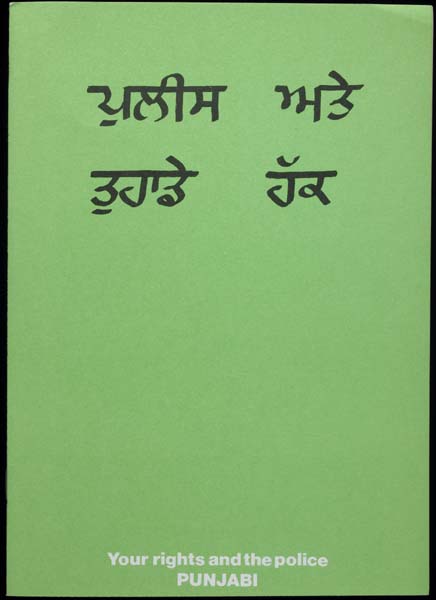 ਪੁਲੀਸ ਅਤੇ
ਤੁਹਾਡੇ ਹੱਕ
Your rights and the police
PUNJABI